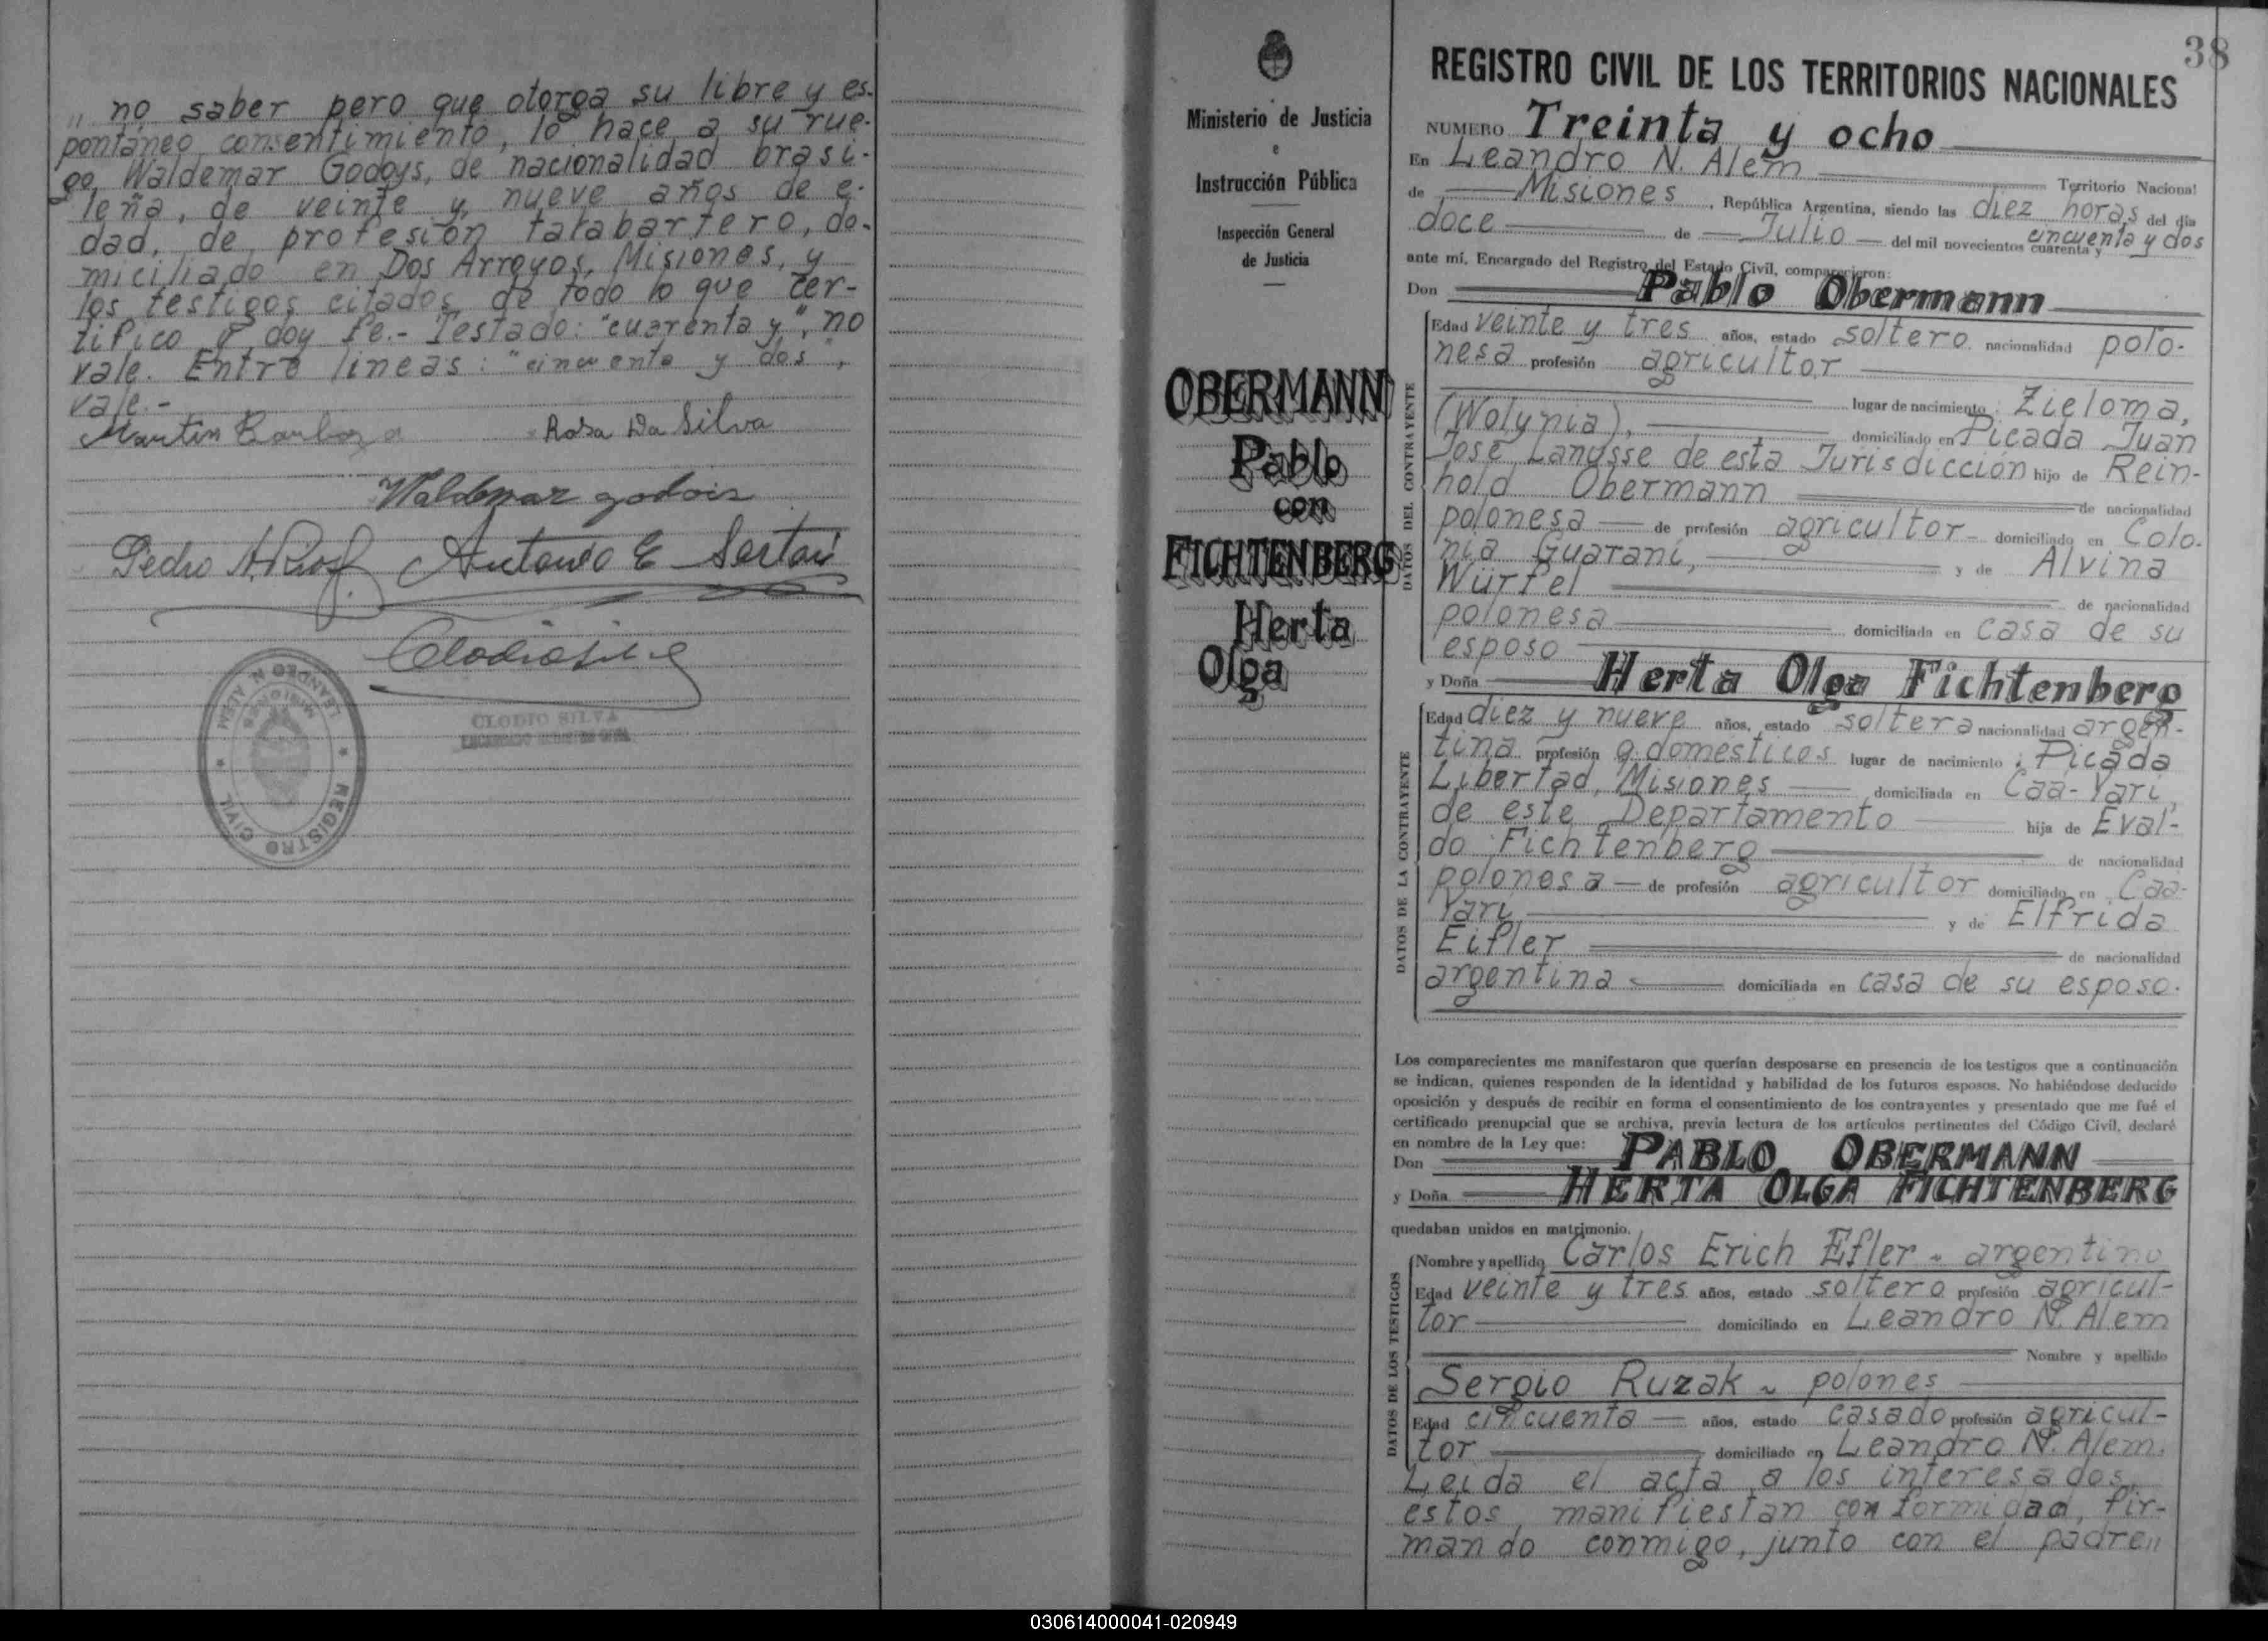 „ no saber pero que otorga su libre y es-
pontáneo consentimiento, lo hace a su rue-
go, Waldemar Godoys, de nacionalidad brasi-
leña, de veinte y nueve años de e-
dad, de profesión talabartero, do-
miciliado en Dos Arroyos, Misiones, y
los testigos citados, de todo lo que cer-
tifico y doy fe.- Testado: "cuarenta y", no
vale. Entre lineas: "cincuenta y dos",
vale.-
Martin Rosa Da Silva
Waldemar godois
Pedro Antonio E Sartori
LEANDRO N. ALEM
MISIONES
REGISTRO CIVIL
CLODIO SILVA
Ministerio de Justicia
e
Instrucción Pública
Inspección General
de Justicia
OBERMANN
Pablo
con
FICHTENBERG
Herta
Olga
38
REGISTRO CIVIL DE LOS TERRITORIOS NACIONALES
NUMERO Treinta y ocho
En Leandro N. Alem Territorio Nacional
de Misiones, República Argentina, siendo las diez horas del día
doce de Julio del mil novecientos cuarenta y cincuenta y dos
ante mí, Encargado del Registro del Estado Civil, comparecieron:
Don Pablo Obermann
DATOS DEL CONTRAYENTE
Edad veinte y tres años, estado soltero nacionalidad polo-
nesa profesión agricultor
lugar de nacimiento: Zieloma,
(Wolynia), domiciliado en Picada Juan
José Lanusse de esta Jurisdicción hijo de Rein-
hold Obermann de nacionalidad
polonesa de profesión agricultor domiciliado en Colo-
nia Guaraní, y de Alvina
Würfel de nacionalidad
polonesa domiciliada en casa de su
esposo
y Doña Herta Olga Fichtenberg
DATOS DE LA CONTRAYENTE
Edad diez y nueve años, estado soltera nacionalidad argen-
tina profesión q. domesticos lugar de nacimiento: Picada
Libertad, Misiones domiciliada en Caá-Yarí,
de este Departamento hija de Eval-
do Fichtenberg de nacionalidad
polonesa de profesión agricultor domiciliado en Caá-
Yarí, y de Elfrida
Eifler de nacionalidad
argentina domiciliada en casa de su esposo.
Los comparecientes me manifestaron que querían desposarse en presencia de los testigos que a continuación
se indican, quienes responden de la identidad y habilidad de los futuros esposos. No habiéndose deducido
oposición y después de recibir en forma el consentimiento de los contrayentes y presentado que me fué el
certificado prenupcial que se archiva, previa lectura de los artículos pertinentes del Código Civil, declaré
en nombre de la Ley que:
Don PABLO OBERMANN
y Doña HERTA OLGA FICHTENBERG
quedaban unidos en matrimonio.
DATOS DE LOS TESTIGOS
Nombre y apellido Carlos Erich Efler - argentino
Edad veinte y tres años, estado soltero profesión agricul-
tor domiciliado en Leandro N. Alem
Nombre y apellido
Sergio Ruzak ~ polones
Edad cincuenta años, estado casado profesión agricul-
tor domiciliado en Leandro N. Alem.
Leida el acta a los interesados,
estos manifiestan conformidad, fir-
mando conmigo, junto con el padre„
030614000041-020949